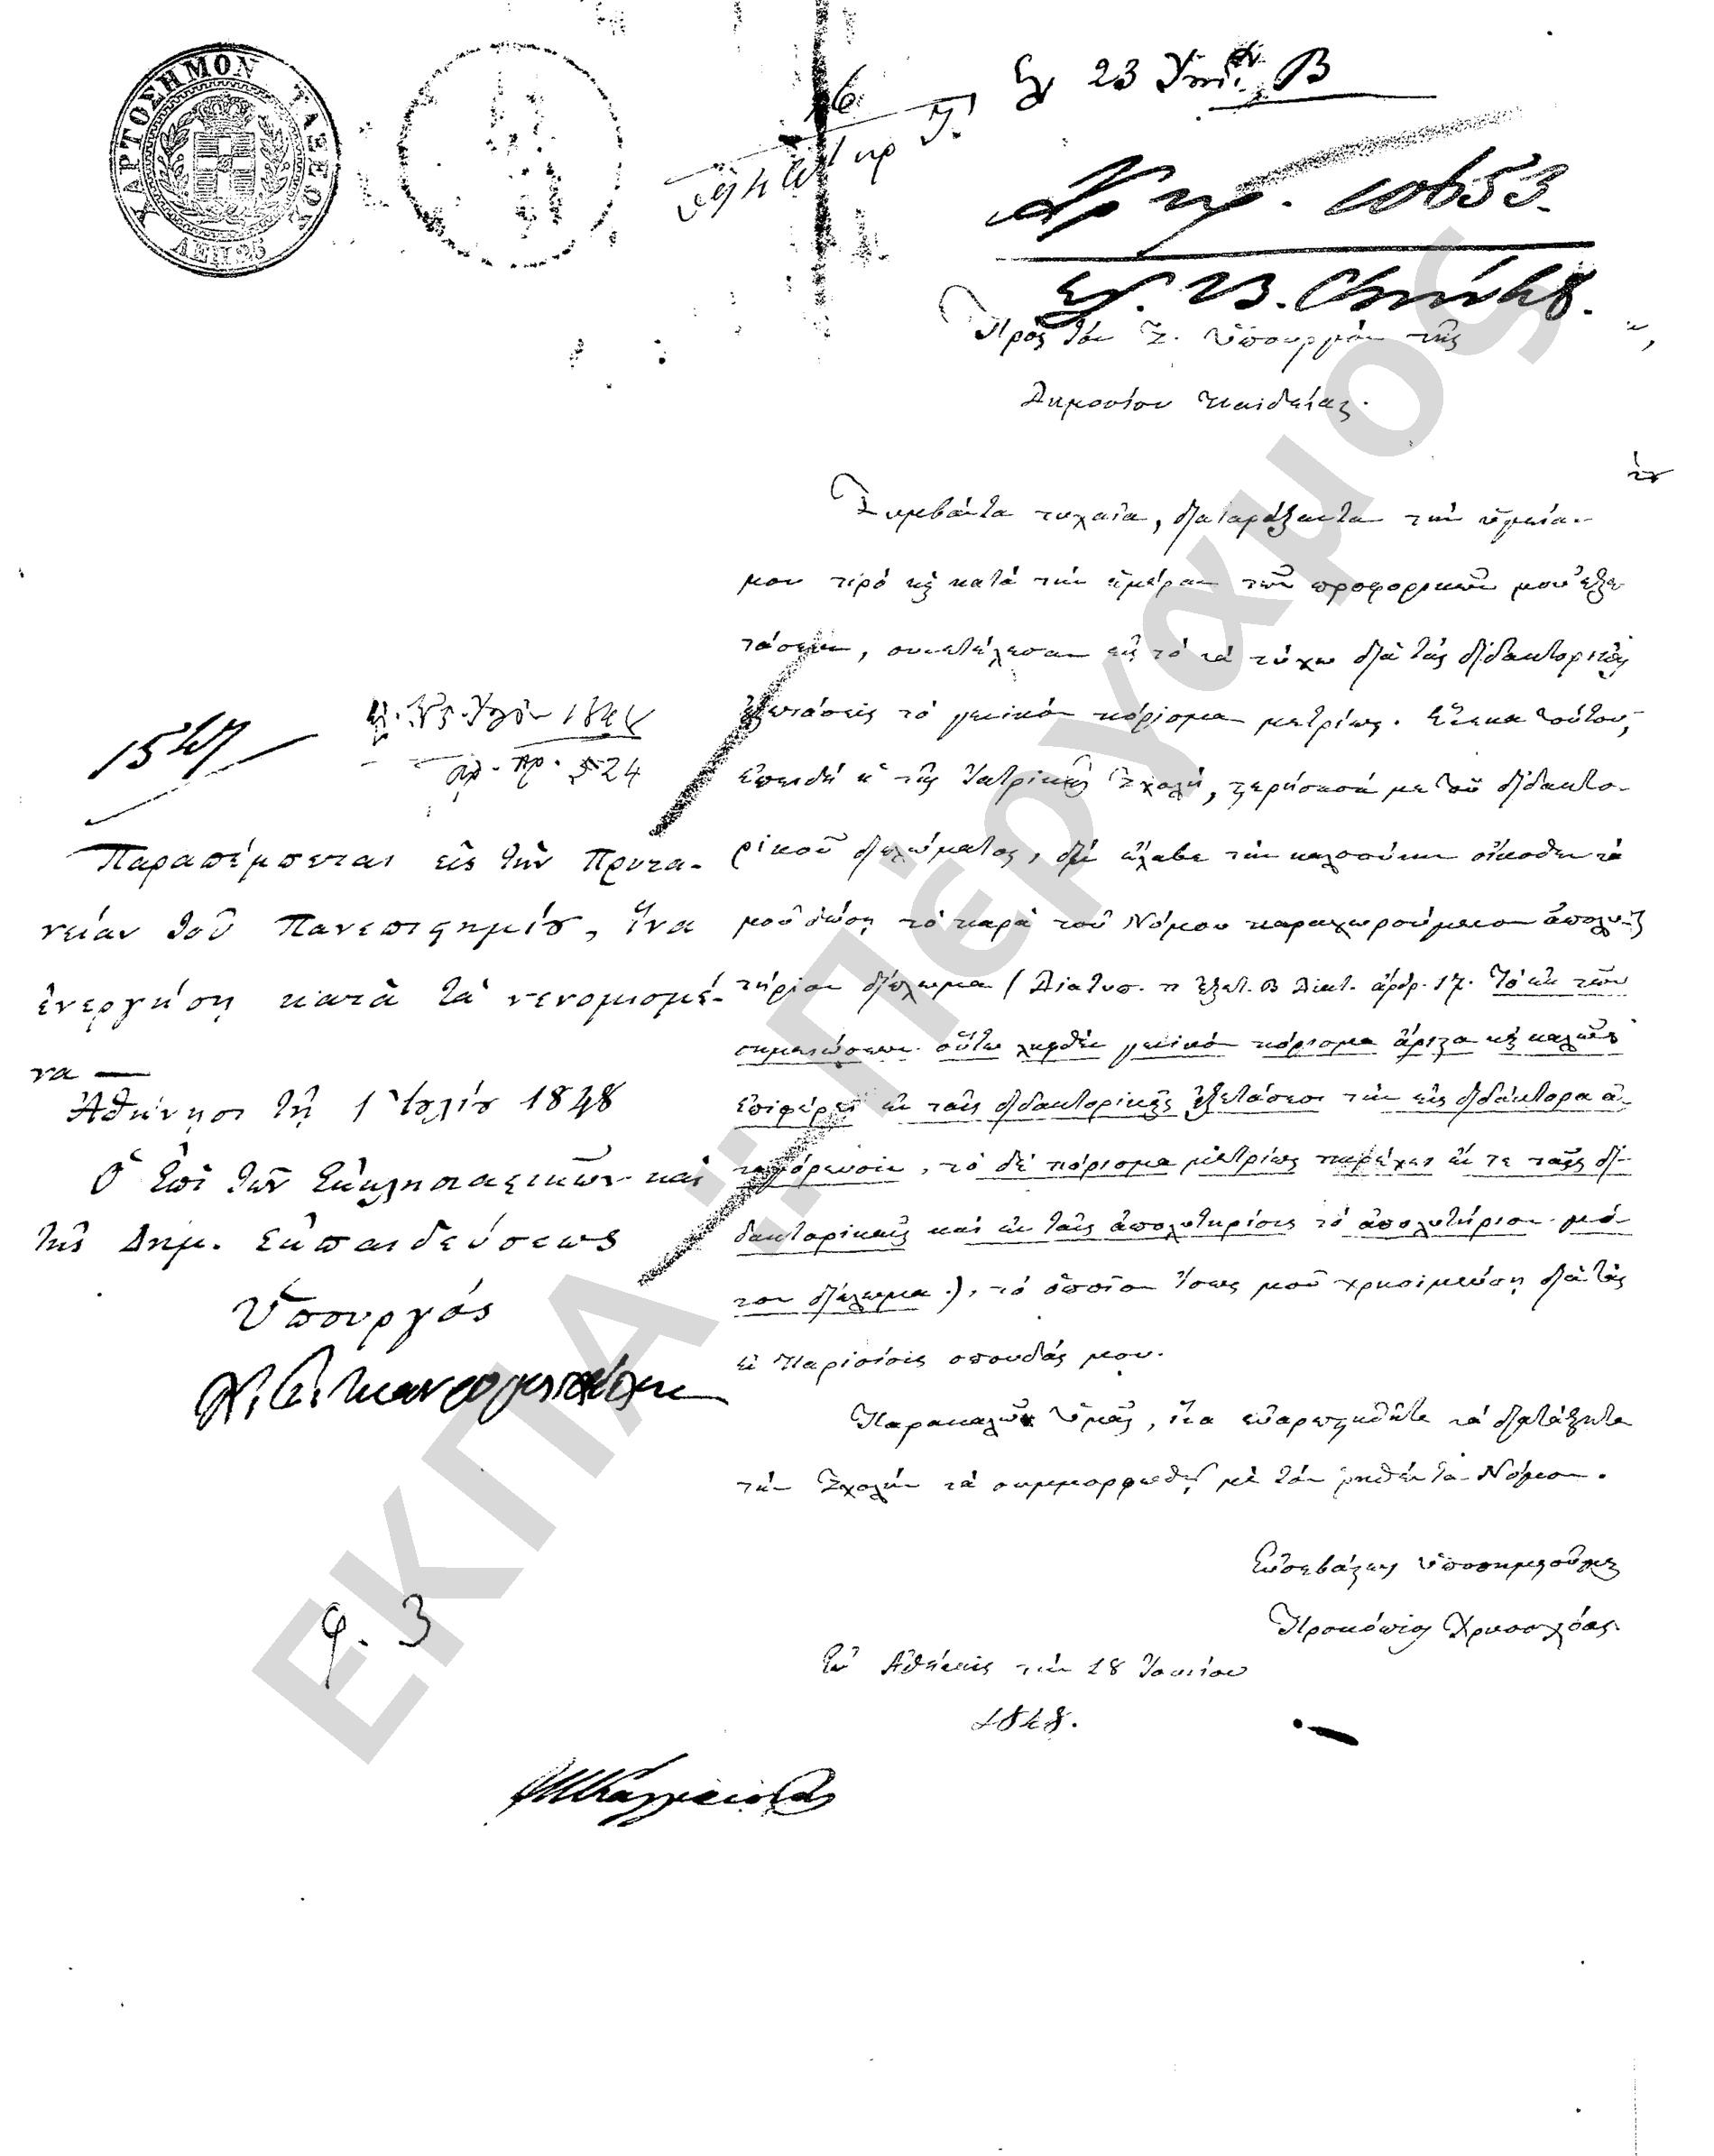 ΧΑΡΤΟΣΗΜΟΝ ΤΑΞΕΩΣ
ΛΕΠ 25
23
Β
Αρ. πρ. 10653.
Πρὸς τὸν Σ. Ὑπουργὸν τῆς
Δημοσίου Παιδείας.
Συμβάντα τυχαῖα, διαταράξαντα τὴν ὑγείαν
μου πρὸ κ κατὰ τὴν ἡμέραν τῶν προφορικῶν μου ἐξε
τάσεων, συνετέλεσαν εἰς τὸ νὰ τύχω διὰ τὰς διδακτορικὰς
ἐξετάσεις τὸ γενικὸν πόρισμα μετρίως. Ἕνεκα τούτου,
ἐπειδὴ ἡ τῆς Ἰατρικῆς Σχολὴ, στερήσασά με τοῦ διδακτο-
ρικοῦ διπλώματος, δὲν ἔλαβε τὴν καλοσύνην οἴκοθεν νὰ
μοῦ δώσῃ τὸ παρὰ τοῦ Νόμου παραχωρούμενον ἀπολυ-
τήριον δίπλωμα (Διατυπ. π Ἐξετ. Β Διατ. ἄρθρ. 17. Τὸ ἐκ τῶν
σημειώσεων οὕτω ληφθὲν γενικὸν πόρισμα ἄριστα κ καλῶς
ἐπιφέρει ἐν ταῖς διδακτορικαῖς ἐξετάσεσι τὴν εἰς διδάκτορα ἀ-
ναγόρευσιν, τὸ δὲ πόρισμα μετρίως παρέχει ἐν τε ταῖς δι-
δακτορικαῖς καὶ ἐν ταῖς ἀπολυτηρίοις τὸ ἀπολυτήριον μό-
νον δίπλωμα.), τὸ ὁποῖον ἴσως μοῦ χρησιμεύσῃ διὰ τὰς
ἐν Παρισίοις σπουδάς μου.
Παρακαλῶ Ὑμᾶς, ἵνα εὐαρεστηθῆτε νὰ διατάξητε
τὴν Σχολὴν νὰ συμμορφωθῇ μὲ τὸν ῥηθέντα Νόμον.
Εὐσεβάστως ὑποσημειοῦμαι
Προκόπιος Χρυσοχόας.
Ἐν Ἀθήναις τὴν 18 Ἰουνίου
1848.
πρ. 524
Παραπέμπεται εἰς τὴν Πρυτα-
νείαν τοῦ Πανεπιστημίου, ἵνα
ἐνεργήσῃ κατὰ τὰ νενομισμέ-
να —
Ἀθήνησι τῇ 1 Ἰουλίου 1848
Ὁ ἐπὶ τῶν Ἐκκλησιαστικῶν καὶ
τῆς Δημ. Ἐκπαιδεύσεως
Ὑπουργός
φ. 3
ΕΚΠΑ::Πέργαμος